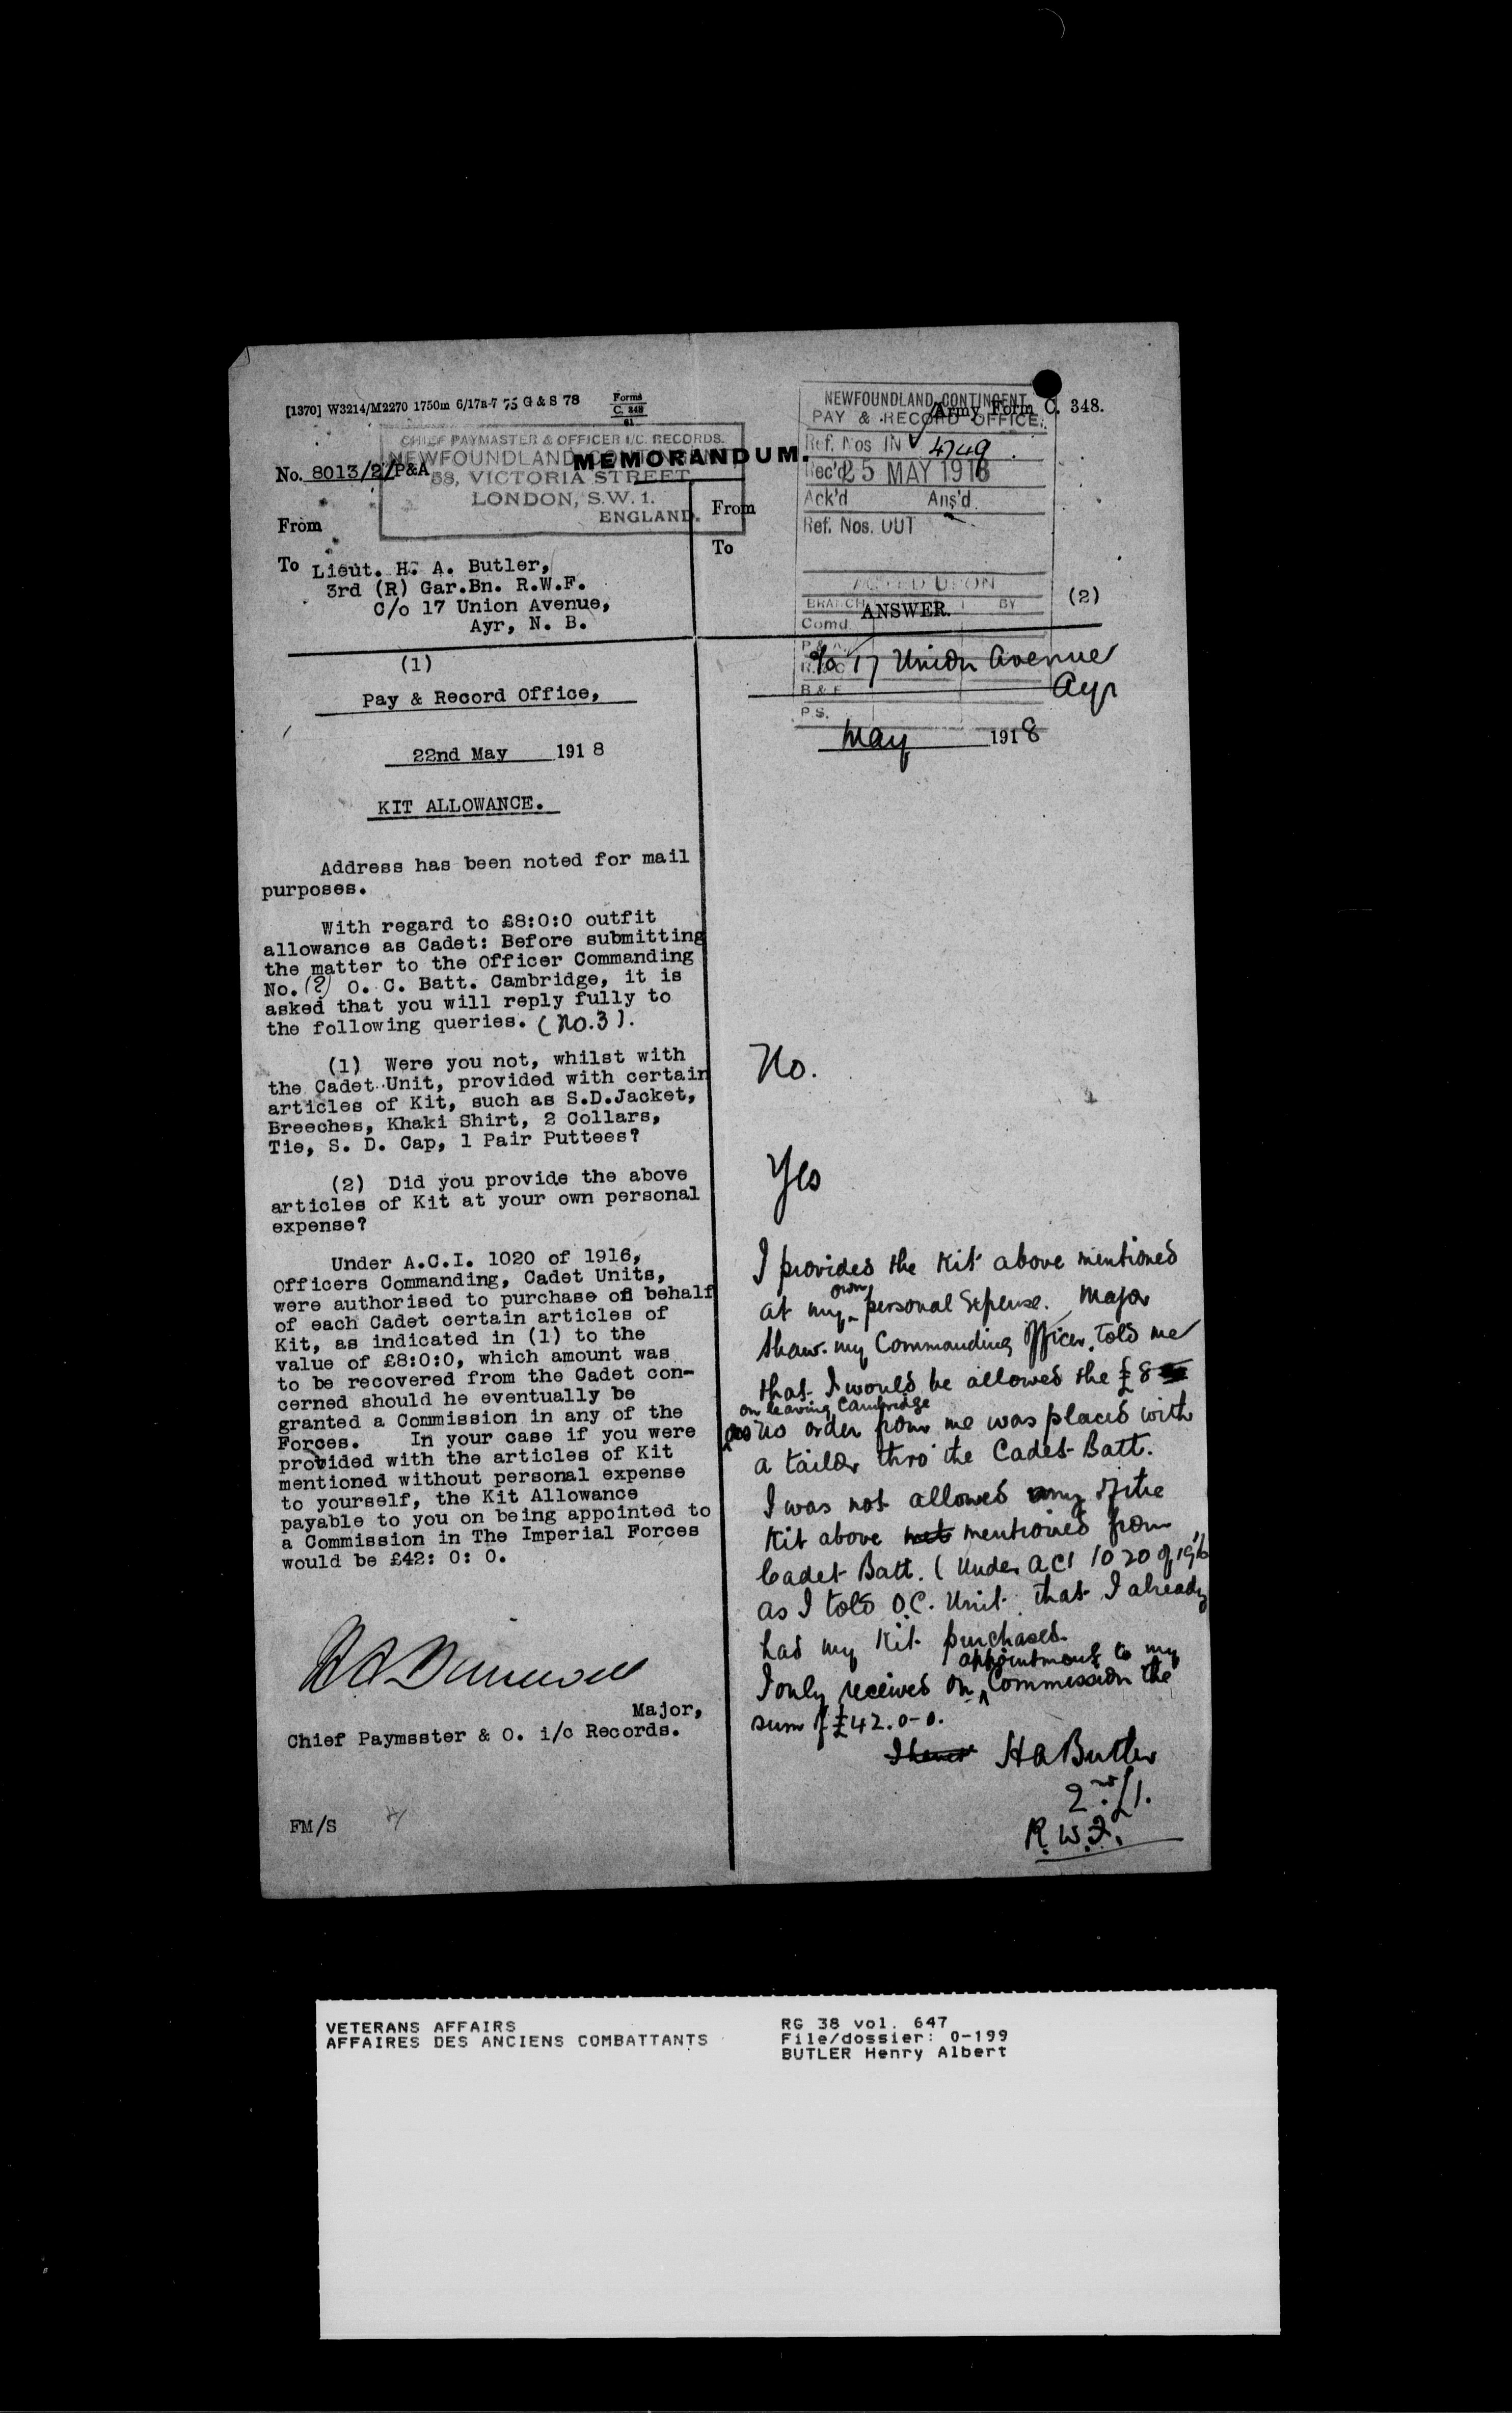 [1370] W3214/M2270 1750m 6/17a-7 75 G & S 78
Forms
C. 348
61
Army Form C. 348.
NEWFOUNDLAND CONTINGENT
PAY & RECORD OFFICE.
Ref. Nos IN 4749
Rec'd 25 MAY 1918
Ack'd Ans'd
Ref. Nos. OUT
ACTED UPON
BRANCH BY
Comd.
P & A.
B & F
P S.
CHIEF PAYMASTER & OFFICER I/C. RECORDS.
NEWFOUNDLAND CONTINGENT
58, VICTORIA STREET
LONDON, S.W. 1.
ENGLAND.
MEMORANDUM.
No. 8013/2/P&A
From
To Lieut. H. A. Butler,
3rd (R) Gar.Bn. R.W.F.
C/o 17 Union Avenue,
Ayr, N. B.
(1)
Pay & Record Office,
22nd May 1918
KIT ALLOWANCE.
Address has been noted for mail
purposes.
With regard to £8:0:0 outfit
allowance as Cadet: Before submitting
the matter to the Officer Commanding
No. (2) O. C. Batt. Cambridge, it is
asked that you will reply fully to
the following queries. (No.3).
(1) Were you not, whilst with
the Cadet Unit, provided with certain
articles of Kit, such as S.D.Jacket,
Breeches, Khaki Shirt, 2 Collars,
Tie, S. D. Cap, 1 Pair Puttees?
(2) Did you provide the above
articles of Kit at your own personal
expense?
Under A.C.I. 1020 of 1916,
Officers Commanding, Cadet Units,
were authorised to purchase on behalf
of each Cadet certain articles of
Kit, as indicated in (1) to the
value of £8:0:0, which amount was
to be recovered from the Cadet con-
cerned should he eventually be
granted a Commission in any of the
Forces. In your case if you were
provided with the articles of Kit
mentioned without personal expense
to yourself, the Kit Allowance
payable to you on being appointed to
a Commission in The Imperial Forces
would be £42: 0: 0.
Major,
Chief Paymsster & O. i/c Records.
FM/S
From
To
ANSWER.
(2)
c/o 17 Union Avenue
Ayr
May 1918
No.
Yes
I provided the Kit above mentioned
at my own personal Expense. Major
Shaw. my Commanding Officer, told me
that I would be allowed the £8
on leaving Cambridge
as no order from me was placed with
a tailor thro' the Cadet Batt.
I was not allowed any of the
Kit above met mentioned from
Cadet Batt. (Under ACI 1020 of 1916
as I told O.C. Unit that I already
had my Kit purchased.
I only received on appointment to my Commission the
sum of £42.0-0.
I have HA Butler
2nd/Lt.
R.W.F.
VETERANS AFFAIRS
AFFAIRES DES ANCIENS COMBATTANTS
RG 38 vol. 647
File/dossier: 0-199
BUTLER Henry Albert